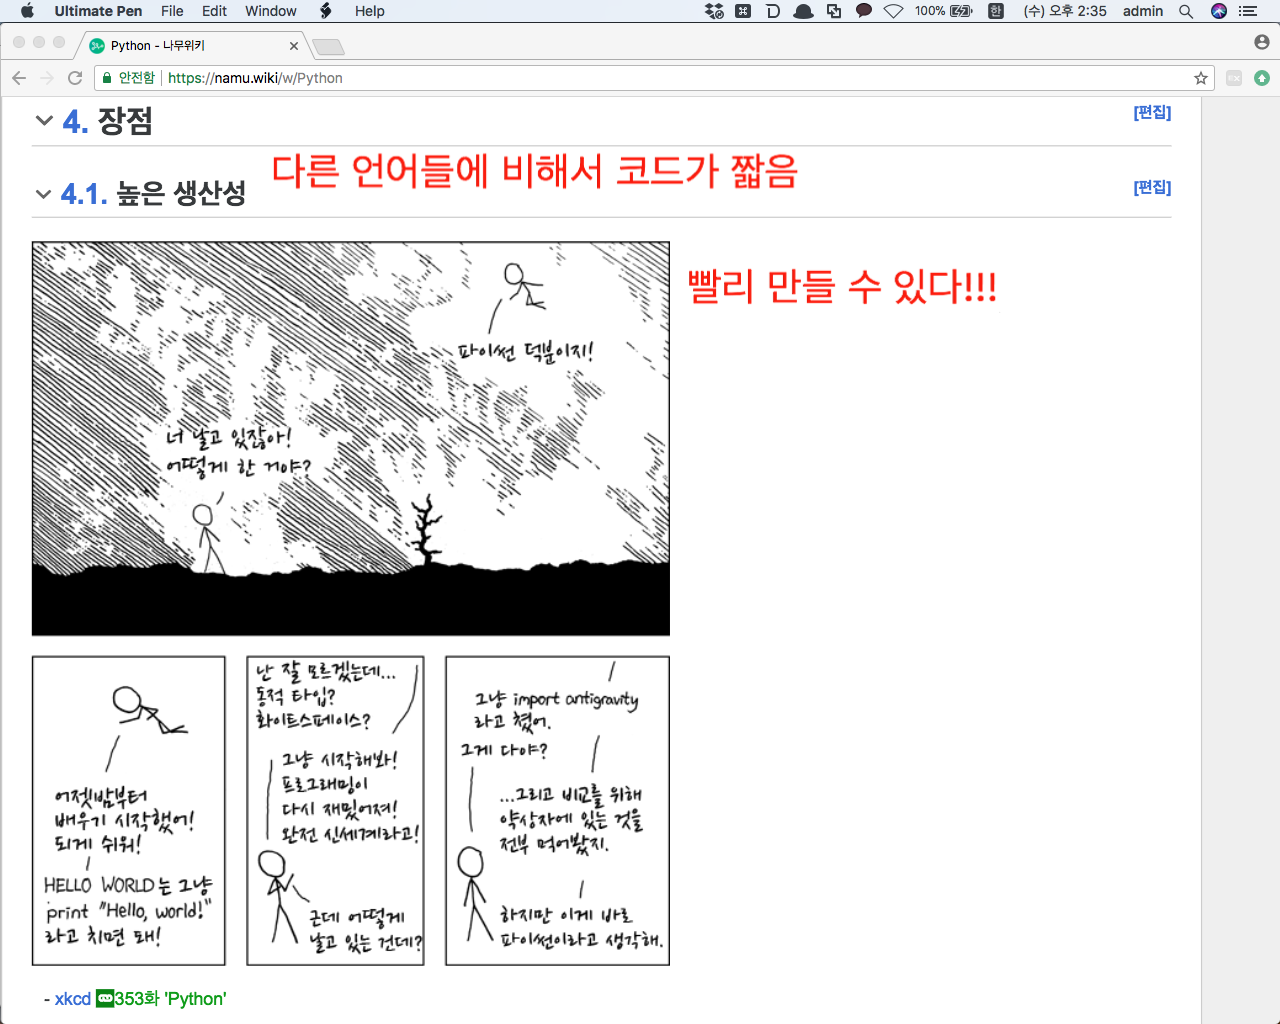 Ultimate Pen File Edit Window Help 100% 한 (수) 오후 2:35 admin
Python - 나무위키
안전함 https://namu.wiki/w/Python
4. 장점 [편집]
다른 언어들에 비해서 코드가 짧음
4.1. 높은 생산성 [편집]
빨리 만들 수 있다!!!
파이썬 덕분이지!
너 날고 있잖아!
어떻게 한 거야?
어젯밤부터
배우기 시작했어!
되게 쉬워!
HELLO WORLD는 그냥
print "Hello, world!"
라고 치면 돼!
난 잘 모르겠는데...
동적 타입?
화이트스페이스?
그냥 시작해봐!
프로그래밍이
다시 재밌어져!
완전 신세계라고!
근데 어떻게
날고 있는 건데?
그냥 import antigravity
라고 쳤어.
그게 다야?
...그리고 비교를 위해
약상자에 있는 것을
전부 먹어봤지.
하지만 이게 바로
파이썬이라고 생각해.
- xkcd 353화 'Python'